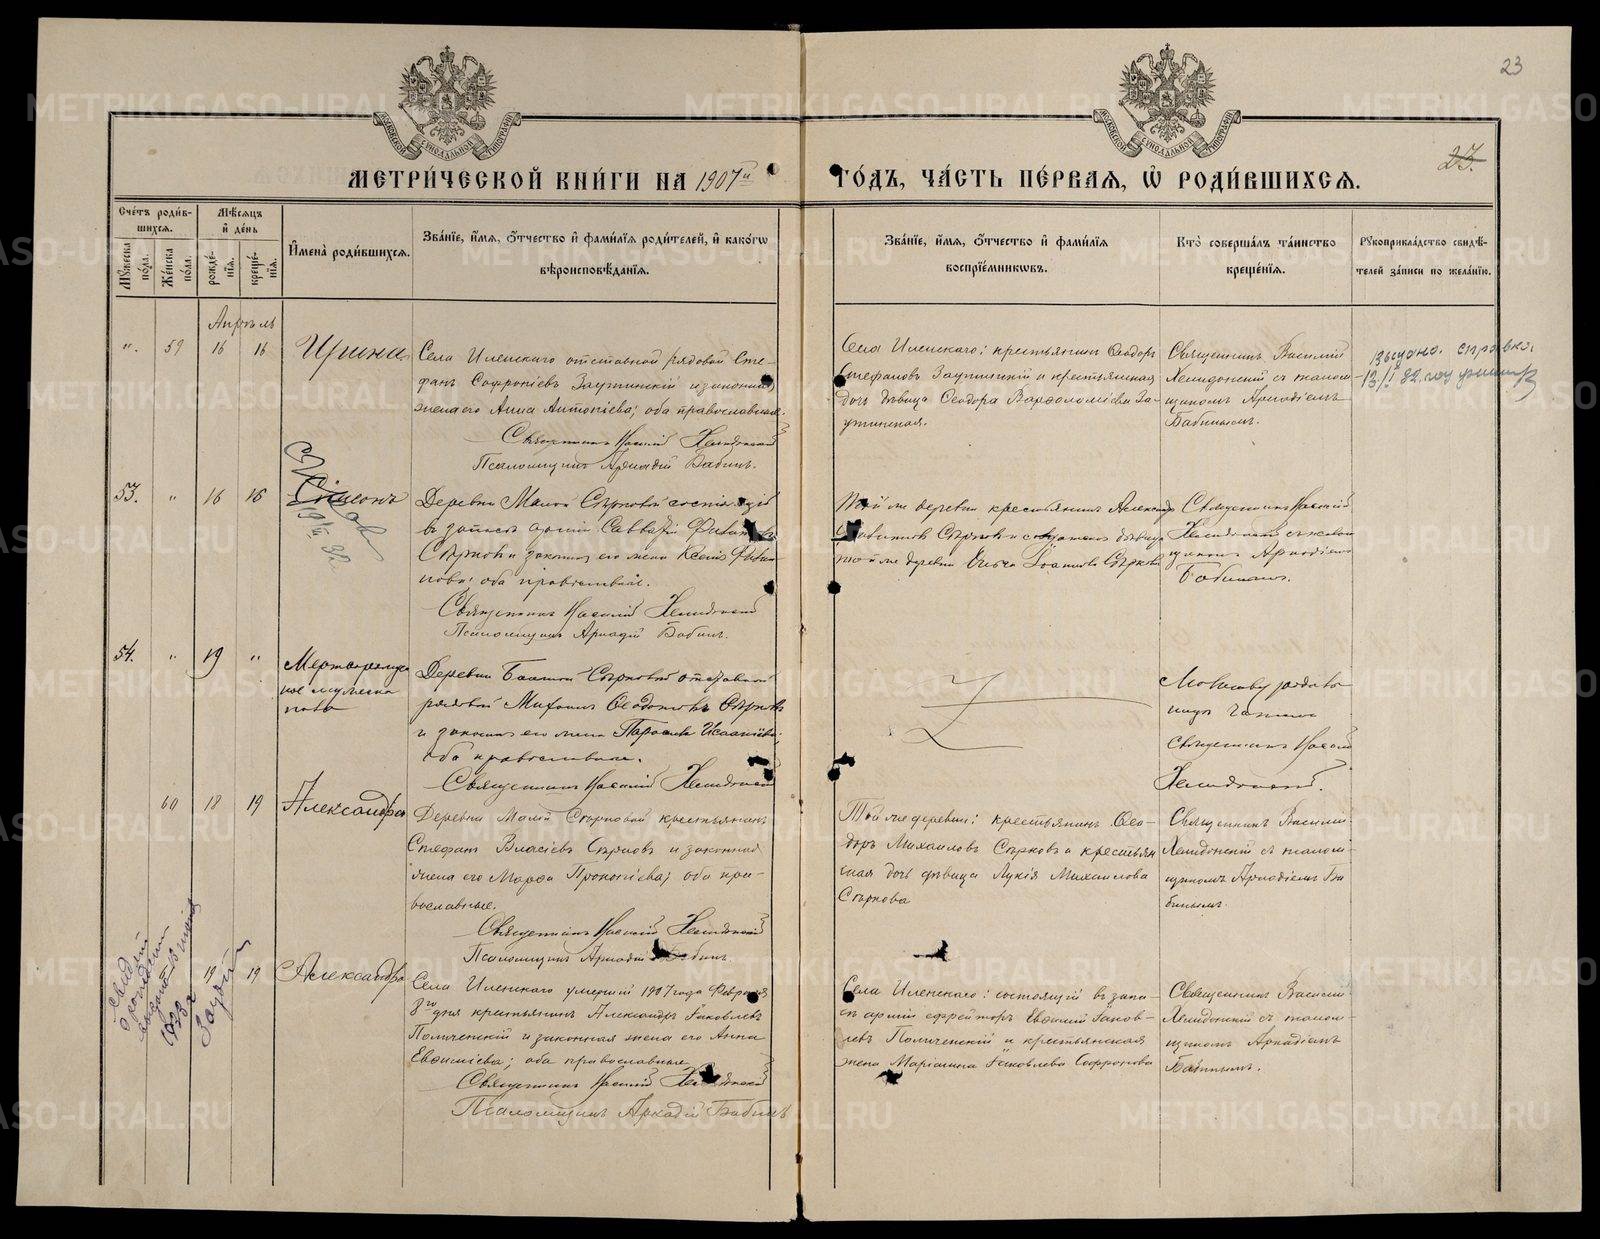 23
23.
МЕТРИ́ЧЕСКОЙ КНИ́ГИ НА 1907й ГО́ДЪ, ЧА́СТЬ ПЕ́РВАѦ, Ѡ҆ РОДИ́ВШИХСѦ.
Сче́тъ роди́в-
шихсѧ.
Мꙋжеска по́ла.
Же́нска по́ла.
Мѣ́сѧцъ
и҆ де́нь
рожде́-
нїѧ.
креще́-
нїѧ.
И҆мена̀ роди́вшихсѧ.
Зва́нїе, и҆́мѧ, ѻ҆́тчество и҆ фами́лїѧ роди́телей, и҆ како́гѡ
вѣроисповѣ́данїѧ.
Зва́нїе, и҆́мѧ, ѻ҆́тчество и҆ фами́лїѧ
воспрїе́мникѡвъ.
Кто̀ соверша́лъ та́инство
креще́нїѧ.
Рꙋкоприкла́дство свидѣ́-
телей за́писи по жела́нїю.
Апрѣль
". 59 16 16 Ирина
Села Иленскаго отставной рядовой Сте-
фанъ Софроніевъ Заутинскій и законная
жена его Анна Антоніева; оба православные.
Священникъ Василій Хелидонскій
Псаломщикъ Аркадій Бабинъ.
Села Иленскаго: крестьянинъ Ѳеодоръ
Стефановъ Заутинскій и крестьянская
дочь дѣвица Ѳеодора Варѳоломіева За-
утинская.
Священникъ Василій
Хелидонскій съ псалом-
щикомъ Аркадіемъ
Бабинымъ.
Выдана справка
53. " 16 16 Симеонъ
Деревни Малой Сѣрковой состоящій
въ запасѣ арміи Савватій
Сѣрковъ и законная его жена Ксенія
оба православные.
Священникъ Василій Хелидонскій
Псаломщикъ Аркадій Бабинъ.
Той же деревни крестьянинъ
Сѣрковъ и дѣвица
той же деревни Іоаннова Сѣркова
Священникъ Василій
Хелидонскій съ псалом-
щикомъ Аркадіемъ
Бабинымъ.
54. " 19 "
Мертворожден-
ное мужеска
пола
Деревни Большой Сѣрковой отставной
рядовой Михаилъ Сѣрковъ
и законная его жена Параскева Исаакіева;
оба православные.
Священникъ Василій Хелидонскій
Молитву родиль-
ницѣ читалъ
священникъ Василій
Хелидонскій.
60 18 19 Александра
Деревни Малой Сѣрковой крестьянинъ
Стефанъ Власіевъ Сѣрковъ и законная
жена его Марѳа Прокопіева; оба пра-
вославные.
Священникъ Василій Хелидонскій
Псаломщикъ Аркадій Бабинъ.
Той же деревни: крестьянинъ Ѳео-
доръ Михаиловъ Сѣрковъ и крестьян-
ская дочь дѣвица Лукія Михаилова
Сѣркова
Священникъ Василій
Хелидонскій съ псалом-
щикомъ Аркадіемъ Ба-
бинымъ.
19 19 Александра
Села Иленскаго умершій 1907 года Февраля
8го дня крестьянинъ Александръ Іаковлевъ
Поличенскій и законная жена его Анна
Евѳиміева; оба православные.
Священникъ Василій Хелидонскій
Псаломщикъ Аркадій Бабинъ
Села Иленскаго: состоящій въ запа-
сѣ арміи ефрейторъ Евѳимій Іаков-
левъ Поличенскій и крестьянская
жена Маріанна Іаковлева Софронова
Священникъ Василій
Хелидонскій съ псалом-
щикомъ Аркадіемъ
Бабинымъ.
METRIKI.GASO-URAL.RU